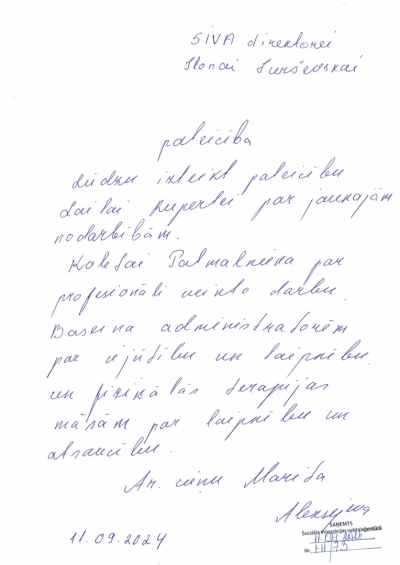 SIVA direktorei
Ilonai Jurševskai
pateicība
Lūdzu izteikt pateicību
Lailai Rupertei par jaukajām
nodarbībām.
Kolēģai Patmalnieka par
profesionāli veikto darbu.
Baseina administratorēm
par iejūtību un laipnību.
un fizikālās terapijas
māsām par laipnību un
atsaucību.
Ar cieņu Marita
Aleksejeva
SAŅEMTS
Sociālās integrācijas valsts aģentūrā
Nr.
11.09.2024